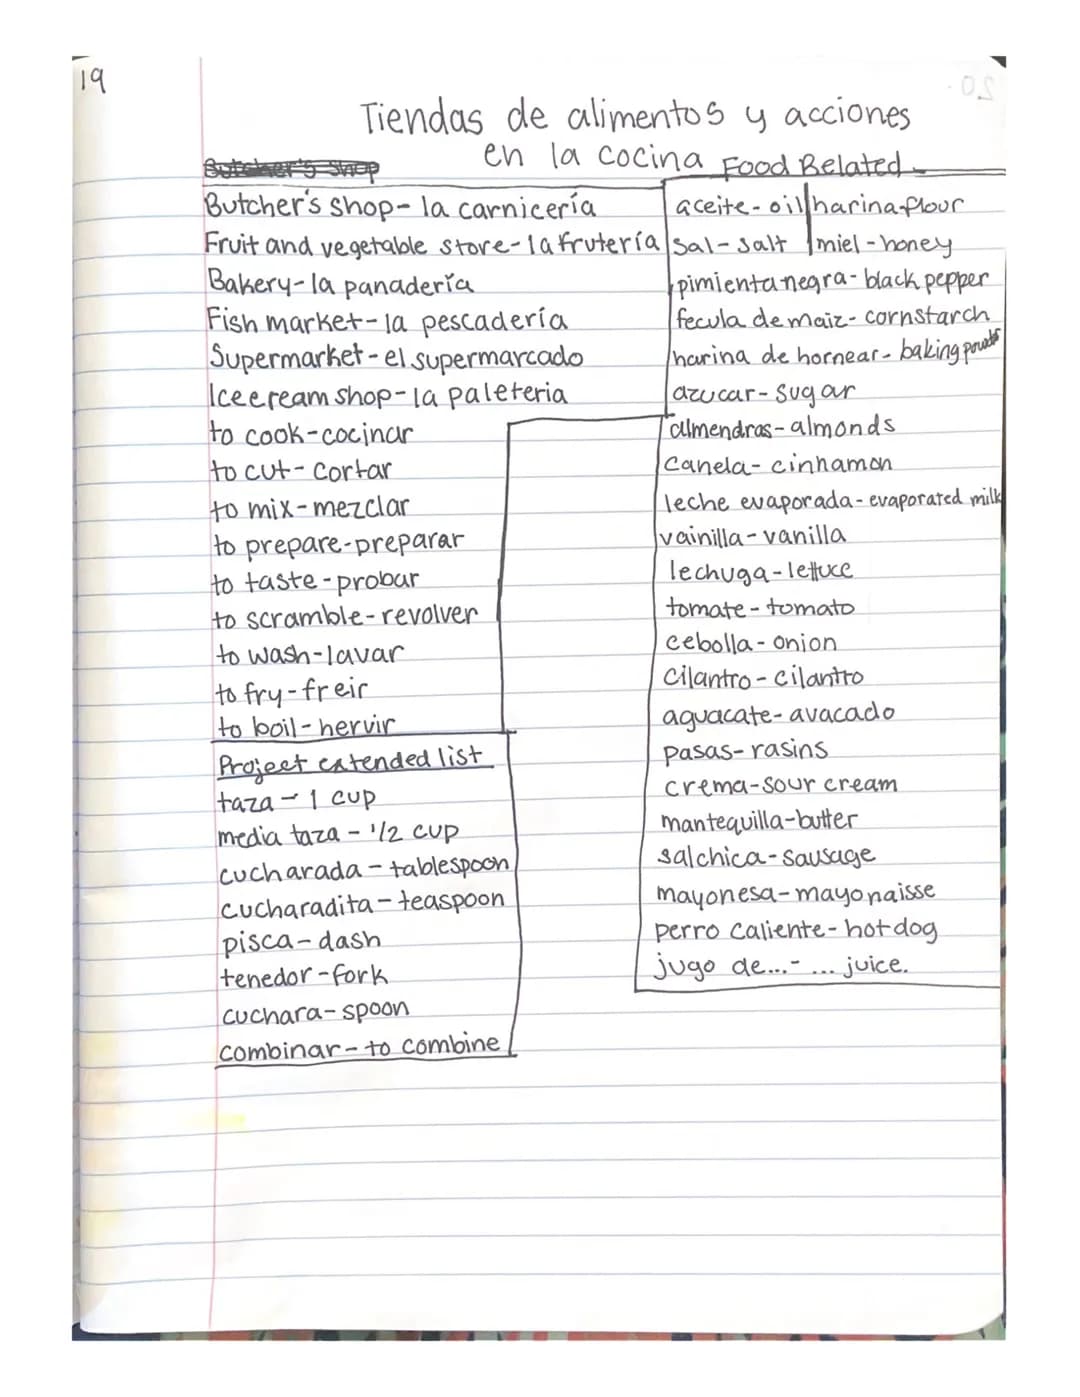 19
Tiendas de alimentos y acciones
en la cocina
Butcher's shop
Butcher's shop- la carnicería
Fruit and vegetable store- la frutería
Bakery- la panadería
Fish market- la pescadería
Supermarket - el supermarcado
Icecream shop- la paleteria
to cook-cocinar
to cut- cortar
to mix-mezclar
to prepare-preparar
to taste-probar
to scramble-revolver
to wash-lavar
to fry-freir
to boil-hervir
Project extended list
taza - 1 cup
media taza - 1/2 cup
cucharada - tablespoon
cucharadita - teaspoon
pisca- dash
tenedor-fork
cuchara-spoon
combinar- to combine
Food Related
aceite- oil harina-flour
sal- salt miel-honey
pimienta negra- black pepper
fecula de maiz- cornstarch
harina de hornear- baking powder
azucar- sugar
almendras- almonds
canela- cinnamon
leche evaporada- evaporated milk
vainilla- vanilla
lechuga-lettuce
tomate- tomato
cebolla- onion
cilantro- cilantro
aguacate- avacado
pasas- rasins
crema-sour cream
mantequilla-butter
salchica- sausage
mayonesa- mayonaisse
perro caliente- hot dog
jugo de...- ... juice.
20